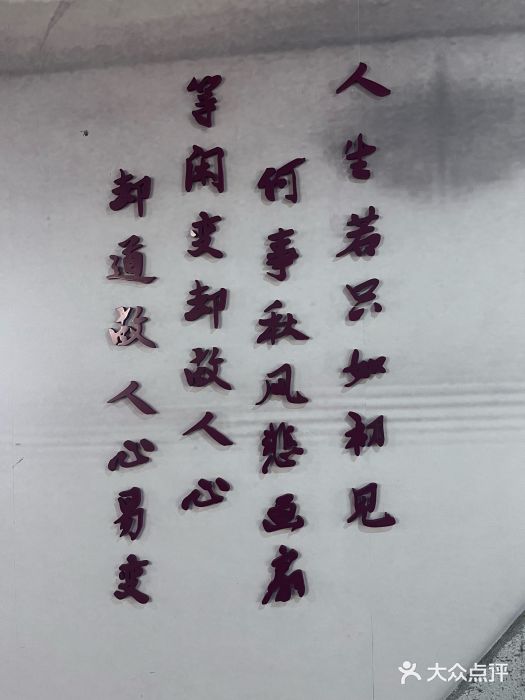 人生若只如初见
何事秋风悲画扇
等闲变却故人心
却道故人心易变
大众点评